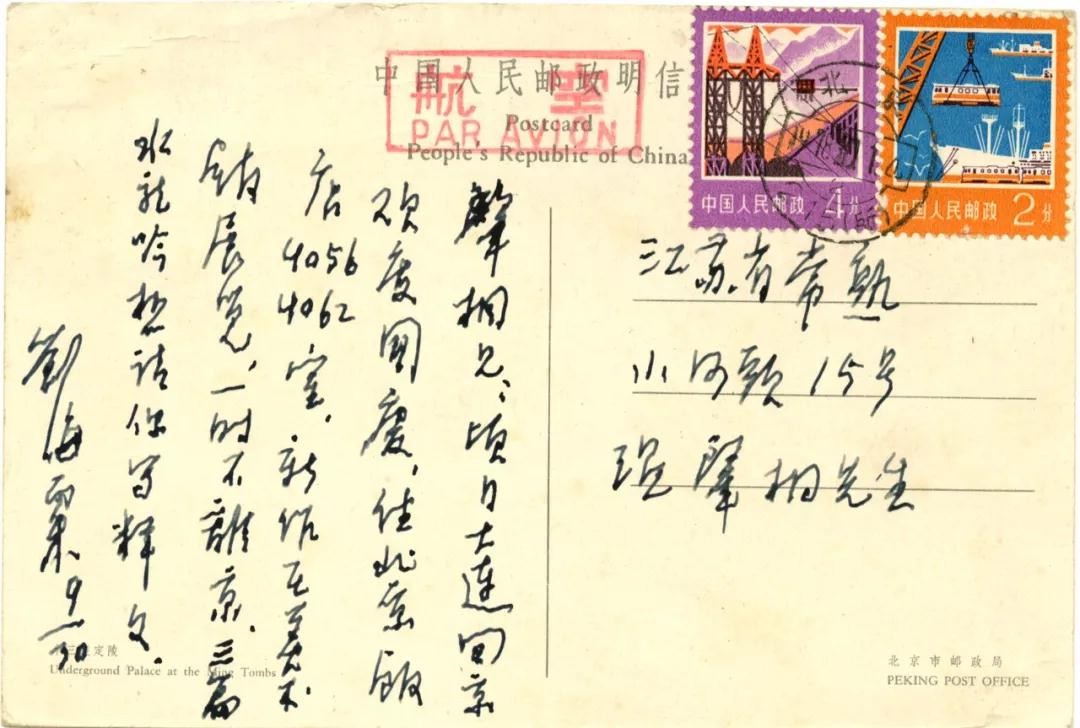 中国人民邮政明信
航空
PAR AVION
Postcard
People's Republic of China
中国人民邮政 4分
中国人民邮政 2分
江苏省常熟
小河头 15号
肇桐先生
肇桐兄:顷自大连回京
欢度国庆,住北京饭
店4056
4062室,新作在美术
馆展览,一时不离京,三篇
水龙吟想请你写释文。
刘海粟 9.30
定陵
Underground Palace at the Ming Tombs
北京市邮政局
PEKING POST OFFICE